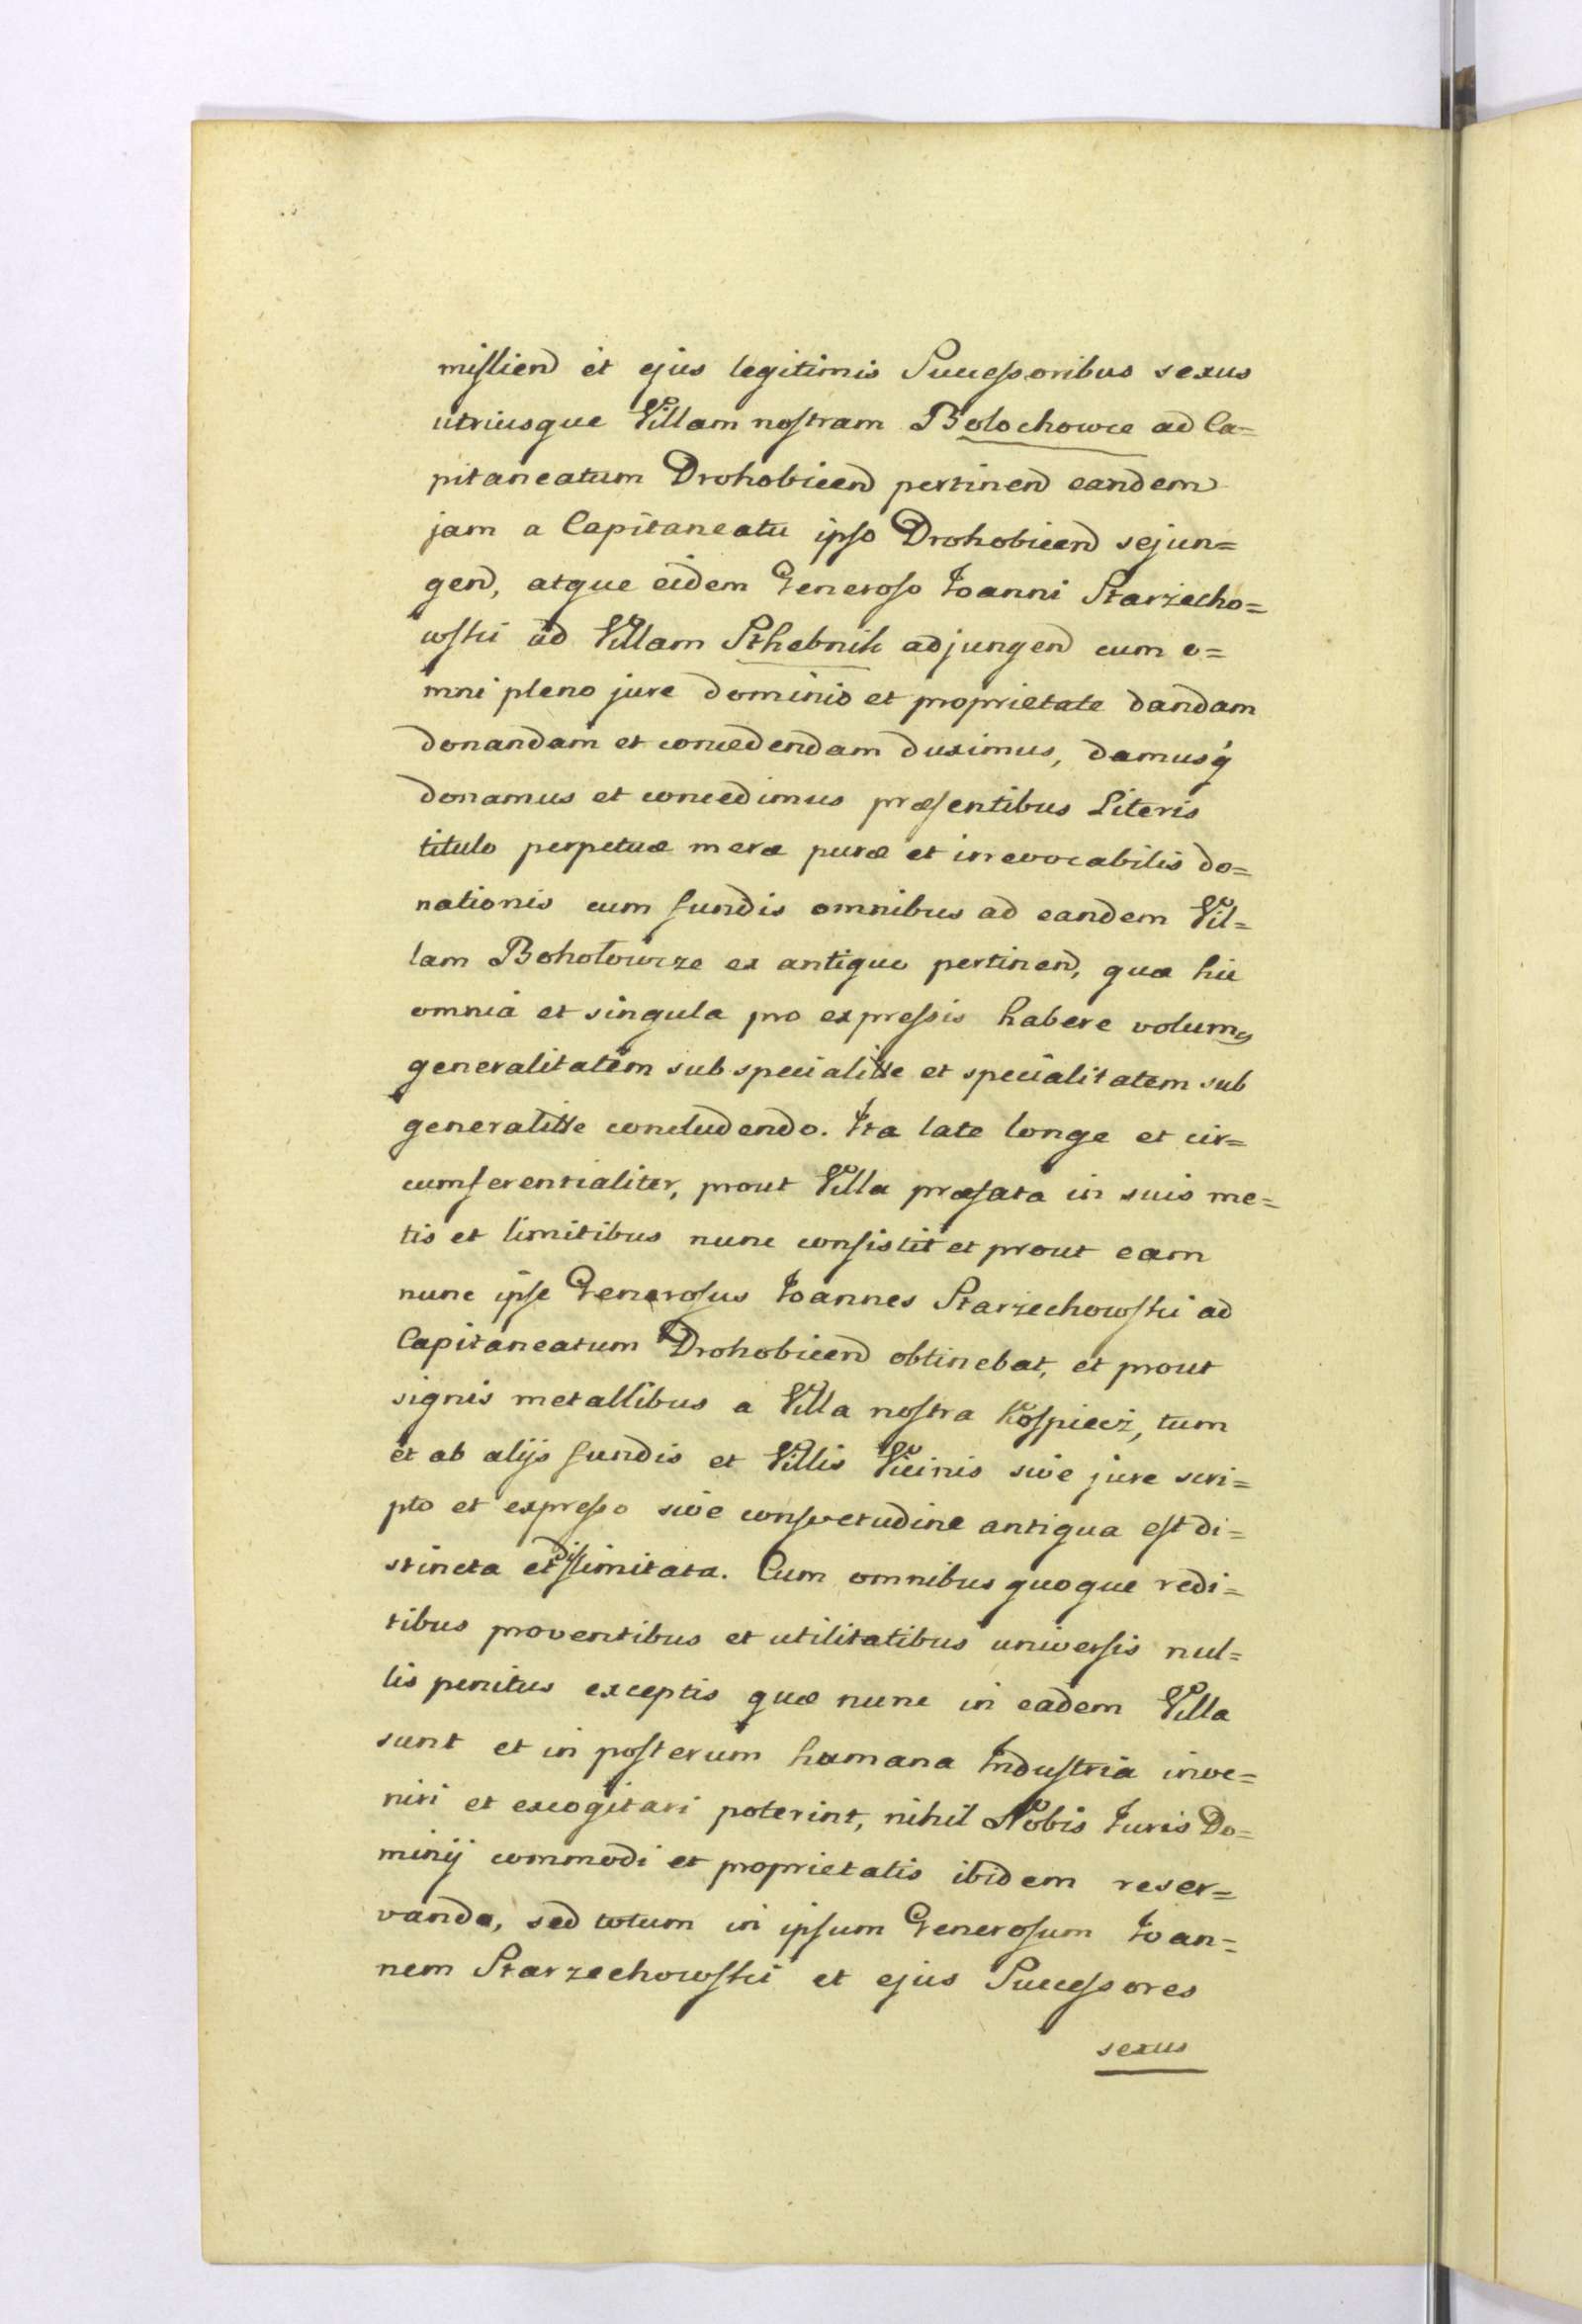 misliend et ejus legitimis Successoribus sexus
utriusque Villam nostram Bolochowce ad Ca=
pitaneatum Drohobicend pertinend eandem
jam a Capitaneatu ipso Drohobicend sejun=
gend, atque eidem Generoso Joanni Starzecho=
wski ad Villam Sthebnik adjungend cum o=
mni pleno jure dominio et proprietate dandam
donandam et concedendam duximus, damusq́
donamus et concedimus præsentibus Literis
titulo perpetuæ meræ puræ et irrevocabilis do=
nationis cum fundis omnibus ad eandem Vil=
lam Bohołowcze ex antiquo pertinend, quæ hic
omnia et singula pro expressis habere volumus
generalitatem sub specialitte et specialitatem sub
generalitte concludendo. Ita late longe et cir=
cumferentialiter, prout Villa præfata in suis me=
tis et limitibus nunc consistit et prout eam
nunc ipse Generosus Joannes Starzechowski ad
Capitaneatum Drohobicend obtinebat, et prout
signis metallibus a Villa nostra Kospiecz, tum
et ab alijs fundis et Villis Vicinis sive jure scri=
pto et expresso sive consvetudine antiqua est di=
stincta et dislimitata. Cum omnibus quoque redi=
tibus proventibus et utilitatibus universis nul=
lis penitus exceptis quæ nunc in eadem Villa
sunt et in posterum humana Industria inve=
niri et excogitari poterint, nihil Nobis Juris Do=
minij commodi et proprietatis ibidem reser=
vando, sed totum in ipsum Generosum Joan=
nem Starzechowski et ejus Successores
sexus